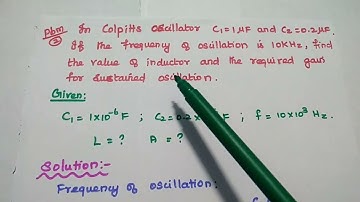 Pbm In Colpitts oscillator C₁=1μF and C₂=0.2μF.
② If the frequency of oscillation is 10KHz, find
the value of inductor and the required gain
for sustained oscillation.
Given:
C₁ = 1×10⁻⁶ F ; C₂=0.2× F ; f = 10×10³ Hz.
L = ? A = ?
Solution:-
Frequency of oscillation: